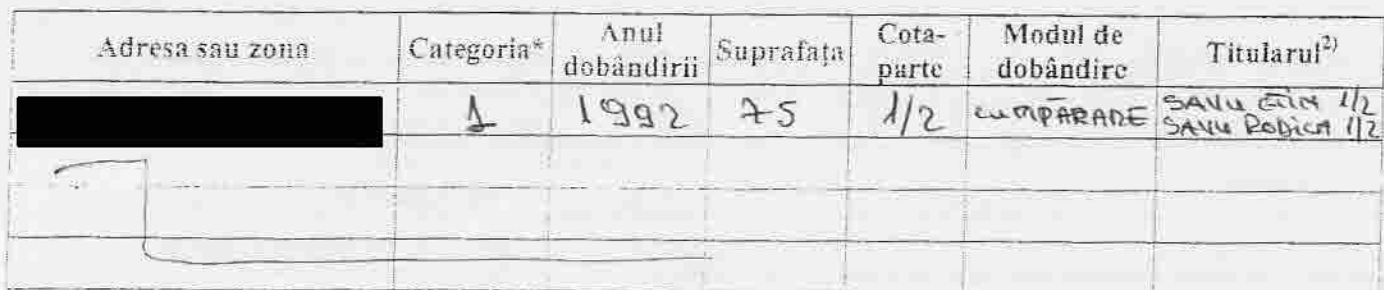 Adresa sau zona Categoria* Anul dobândirii Suprafața Cota-parte Modul de dobândire Titularul2)
1 1992 75 1/2 CUMPĂRARE SAVU 1/2
SAVU RODICA 1/2